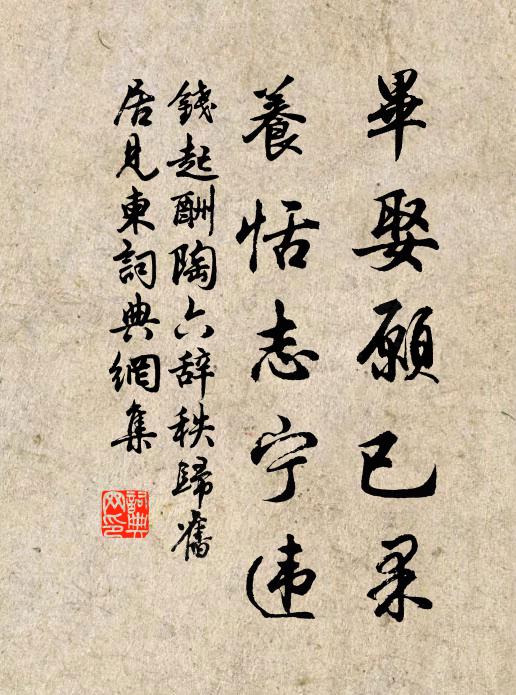 畢娶願已果
養恬志宁违
錢起酬陶六辞秩歸舊
居見東詞典網集
詞典網印